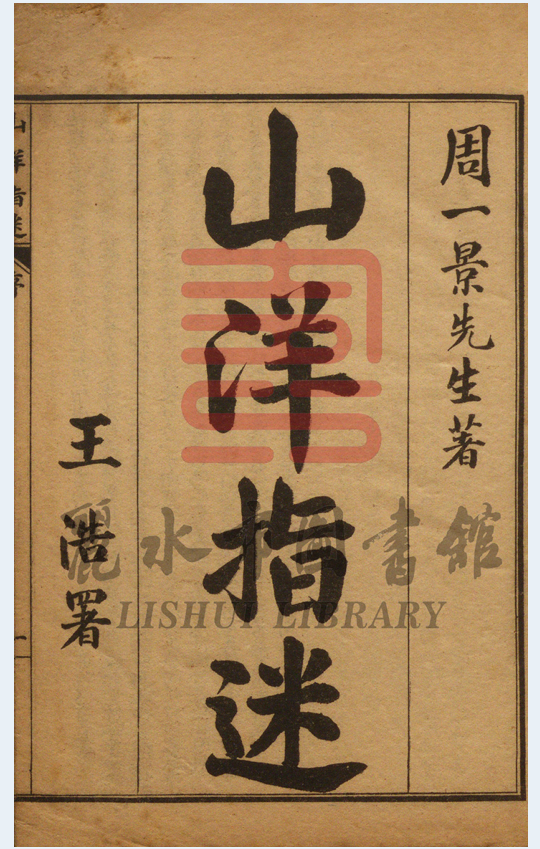 周一景先生著
山洋指迷
王浩署
山洋指迷
序
一
麗水市圖書館
LISHUI LIBRARY